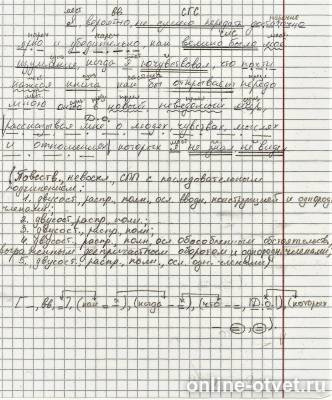 мест. вв. СГС
Я, вероятно, не сумею передать достаточно
нареч. СИС
ярко и убедительно, как велико было моё
изумление, когда я почувствовал, что почти
каждая книга как бы открывает передо
мною окно в новый, неведомый мир,
Д.О.
рассказывая мне о людях, чувствах, мыслях
и отношениях, которых я не знал, не видел.
(Повеств., невоскл., СПП с последовательным
подчинением:
1. двусост., распр., полн., осл. вводн. конструкцией и однород.
членами;
2. двусост., распр., полн.;
3. двусост., распр., полн.;
4. двусост., распр., полн., осл. обособленным обстоятельством,
выраженным деепричастным оборотом и однородн. членами;
5. двусост., распр., полн., осл. одн. членами)
[–, вв, =], (как = –), (когда – =), (что – =, |Д.О.|), (которых
– =, =).
online-otvet.ru